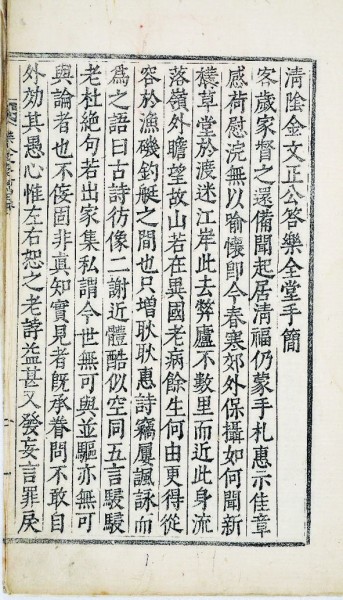 清陰金文正公答樂全堂手簡
客歲家督之還備聞起居清福仍蒙手札惠示佳章
感荷慰浣無以喻懷卽今春寒郊外保攝如何聞新
構草堂於渡迷江岸此去弊廬不數里而近此身流
落嶺外瞻望故山若在異國老病餘生何由更得從
容於漁磯釣艇之間也只增耿耿惠詩竊屢諷詠而
爲之語曰古詩彷像二謝近體酷似空同五言駸駸
老杜絶句若出家集私謂今世無可與並驅亦無可
與論者也不佞固非眞知實見者旣承眷問不敢自
外効其愚心惟左右恕之老誖益甚又發妄言罪戾